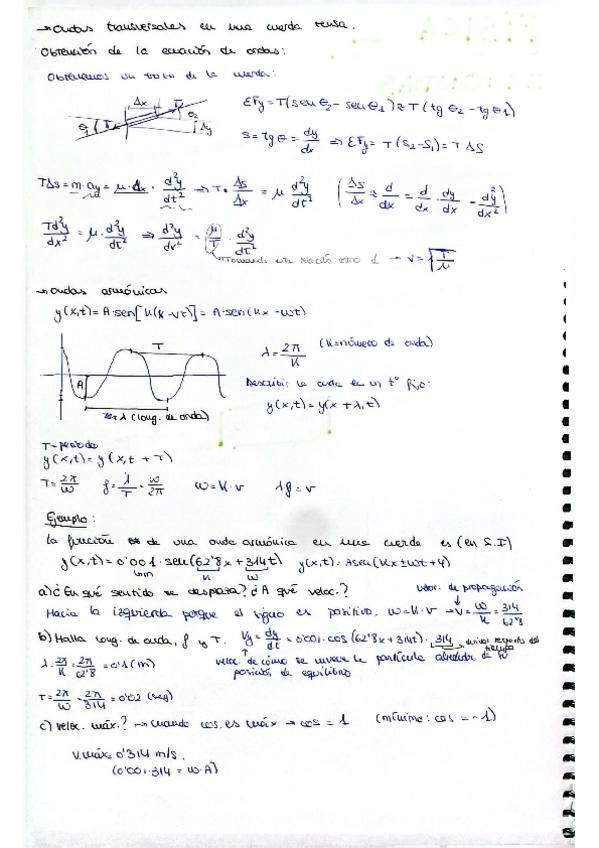 → Ondas transversales en una cuerda tensa.
Obtención de la ecuación de ondas:
Obtenemos un trozo de la cuerda:
Δx T
θ1 T θ2 Δy
ΣFy = T(sen θ2 - sen θ1) ≈ T(tg θ2 - tg θ1)
S = tg θ = dy/dx ⇒ ΣFy = T(S2 - S1) = T ΔS
TΔS = m·ay = μ·dx · d²y/dt² → T · ΔS/Δx = μ d²y/dt² (ΔS/Δx ≈ d/dx = d/dx · dy/dx = d²y/dx²)
Td²y/dx² = μ · d²y/dt² ⇒ d²y/dx² = μ/T · d²y/dt²
Tomando esta relación como 1 → v = √T/μ
→ Ondas armónicas
y(x,t) = A·sen[K(x-vt)] = A·sen(Kx - wt)
T
A
λ (long. de onda)
λ = 2π/K (K = número de onda)
Describir la onda en un tº fijo:
y(x,t) = y(x + λ, t)
T = periodo
y(x,t) = y(x, t + T)
T = 2π/w f = 1/T = w/2π w = K·v λf = v
Ejemplo:
La función de una onda armónica en una cuerda es (en S.I)
y(x,t) = 0'001·sen(62'8x + 314t) y(x,t) = Asen(Kx ± wt + φ)
K w
a) ¿En qué sentido se desplaza? ¿A qué veloc.?
veloc. de propagación
Hacia la izquierda porque el signo es positivo. w = K·v → v = w/K = 314/62'8
b) Halla long. de onda, f y T. Vy = dy/dt = 0'001·cos(62'8x + 314t)·314
λ = 2π/K = 2π/62'8 = 0'1 (m)
veloc. de cómo se mueve la partícula alrededor de su
posición de equilibrio
T = 2π/w = 2π/314 = 0'02 (seg)
c) Veloc. máx.? → cuando cos. es máx → cos = 1 (mínimo: cos = -1)
V.máx = 0'314 m/s.
(0'001·314 = w·A)